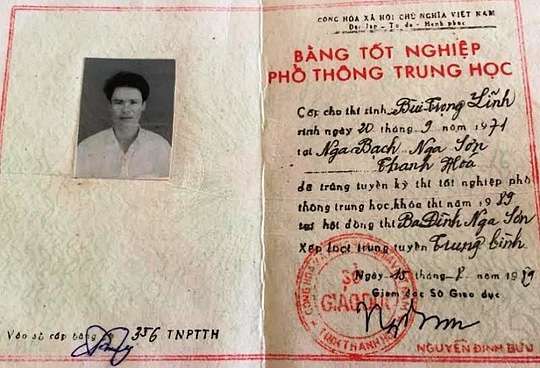 CỘNG HÒA XÃ HỘI CHỦ NGHĨA VIỆT NAM
Độc lập - Tự do - Hạnh phúc
BẰNG TỐT NGHIỆP
PHỔ THÔNG TRUNG HỌC
Cấp cho thí sinh Bùi Trọng Lĩnh
sinh ngày 20 tháng 9 năm 1971
tại Nga Bạch Nga Sơn
Thanh Hóa
đã trúng tuyển kỳ thi tốt nghiệp phổ
thông trung học, khóa thi năm 1989
tại hội đồng thi Ba Đình Nga Sơn
Xếp loại trúng tuyển Trung bình
Ngày 15 tháng năm 1989
Giám đốc Sở Giáo dục
SỞ
GIÁO DỤC
TỈNH THANH HÓA
NGUYỄN ĐÌNH BƯU
Vào sổ cấp bằng 356 TNPTTH